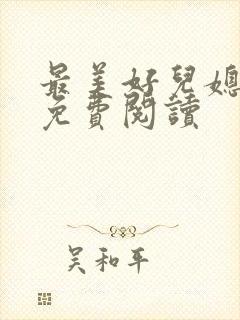 最美好兒媳
免費閱讀
吴和平